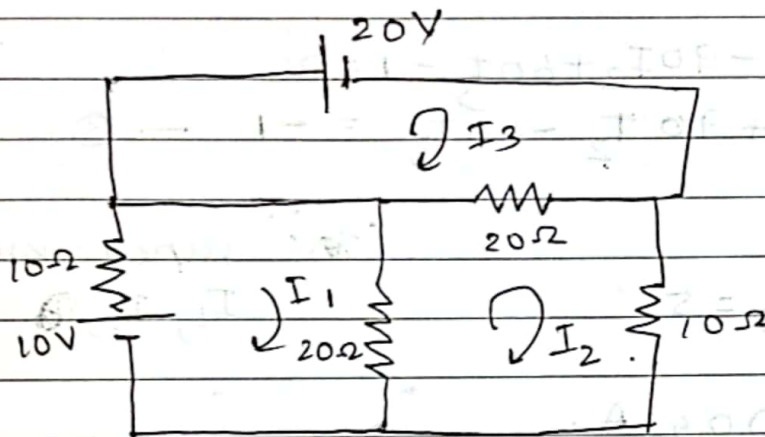 20V
I3
20Ω
10Ω
I1
10V
20Ω
I2
10Ω